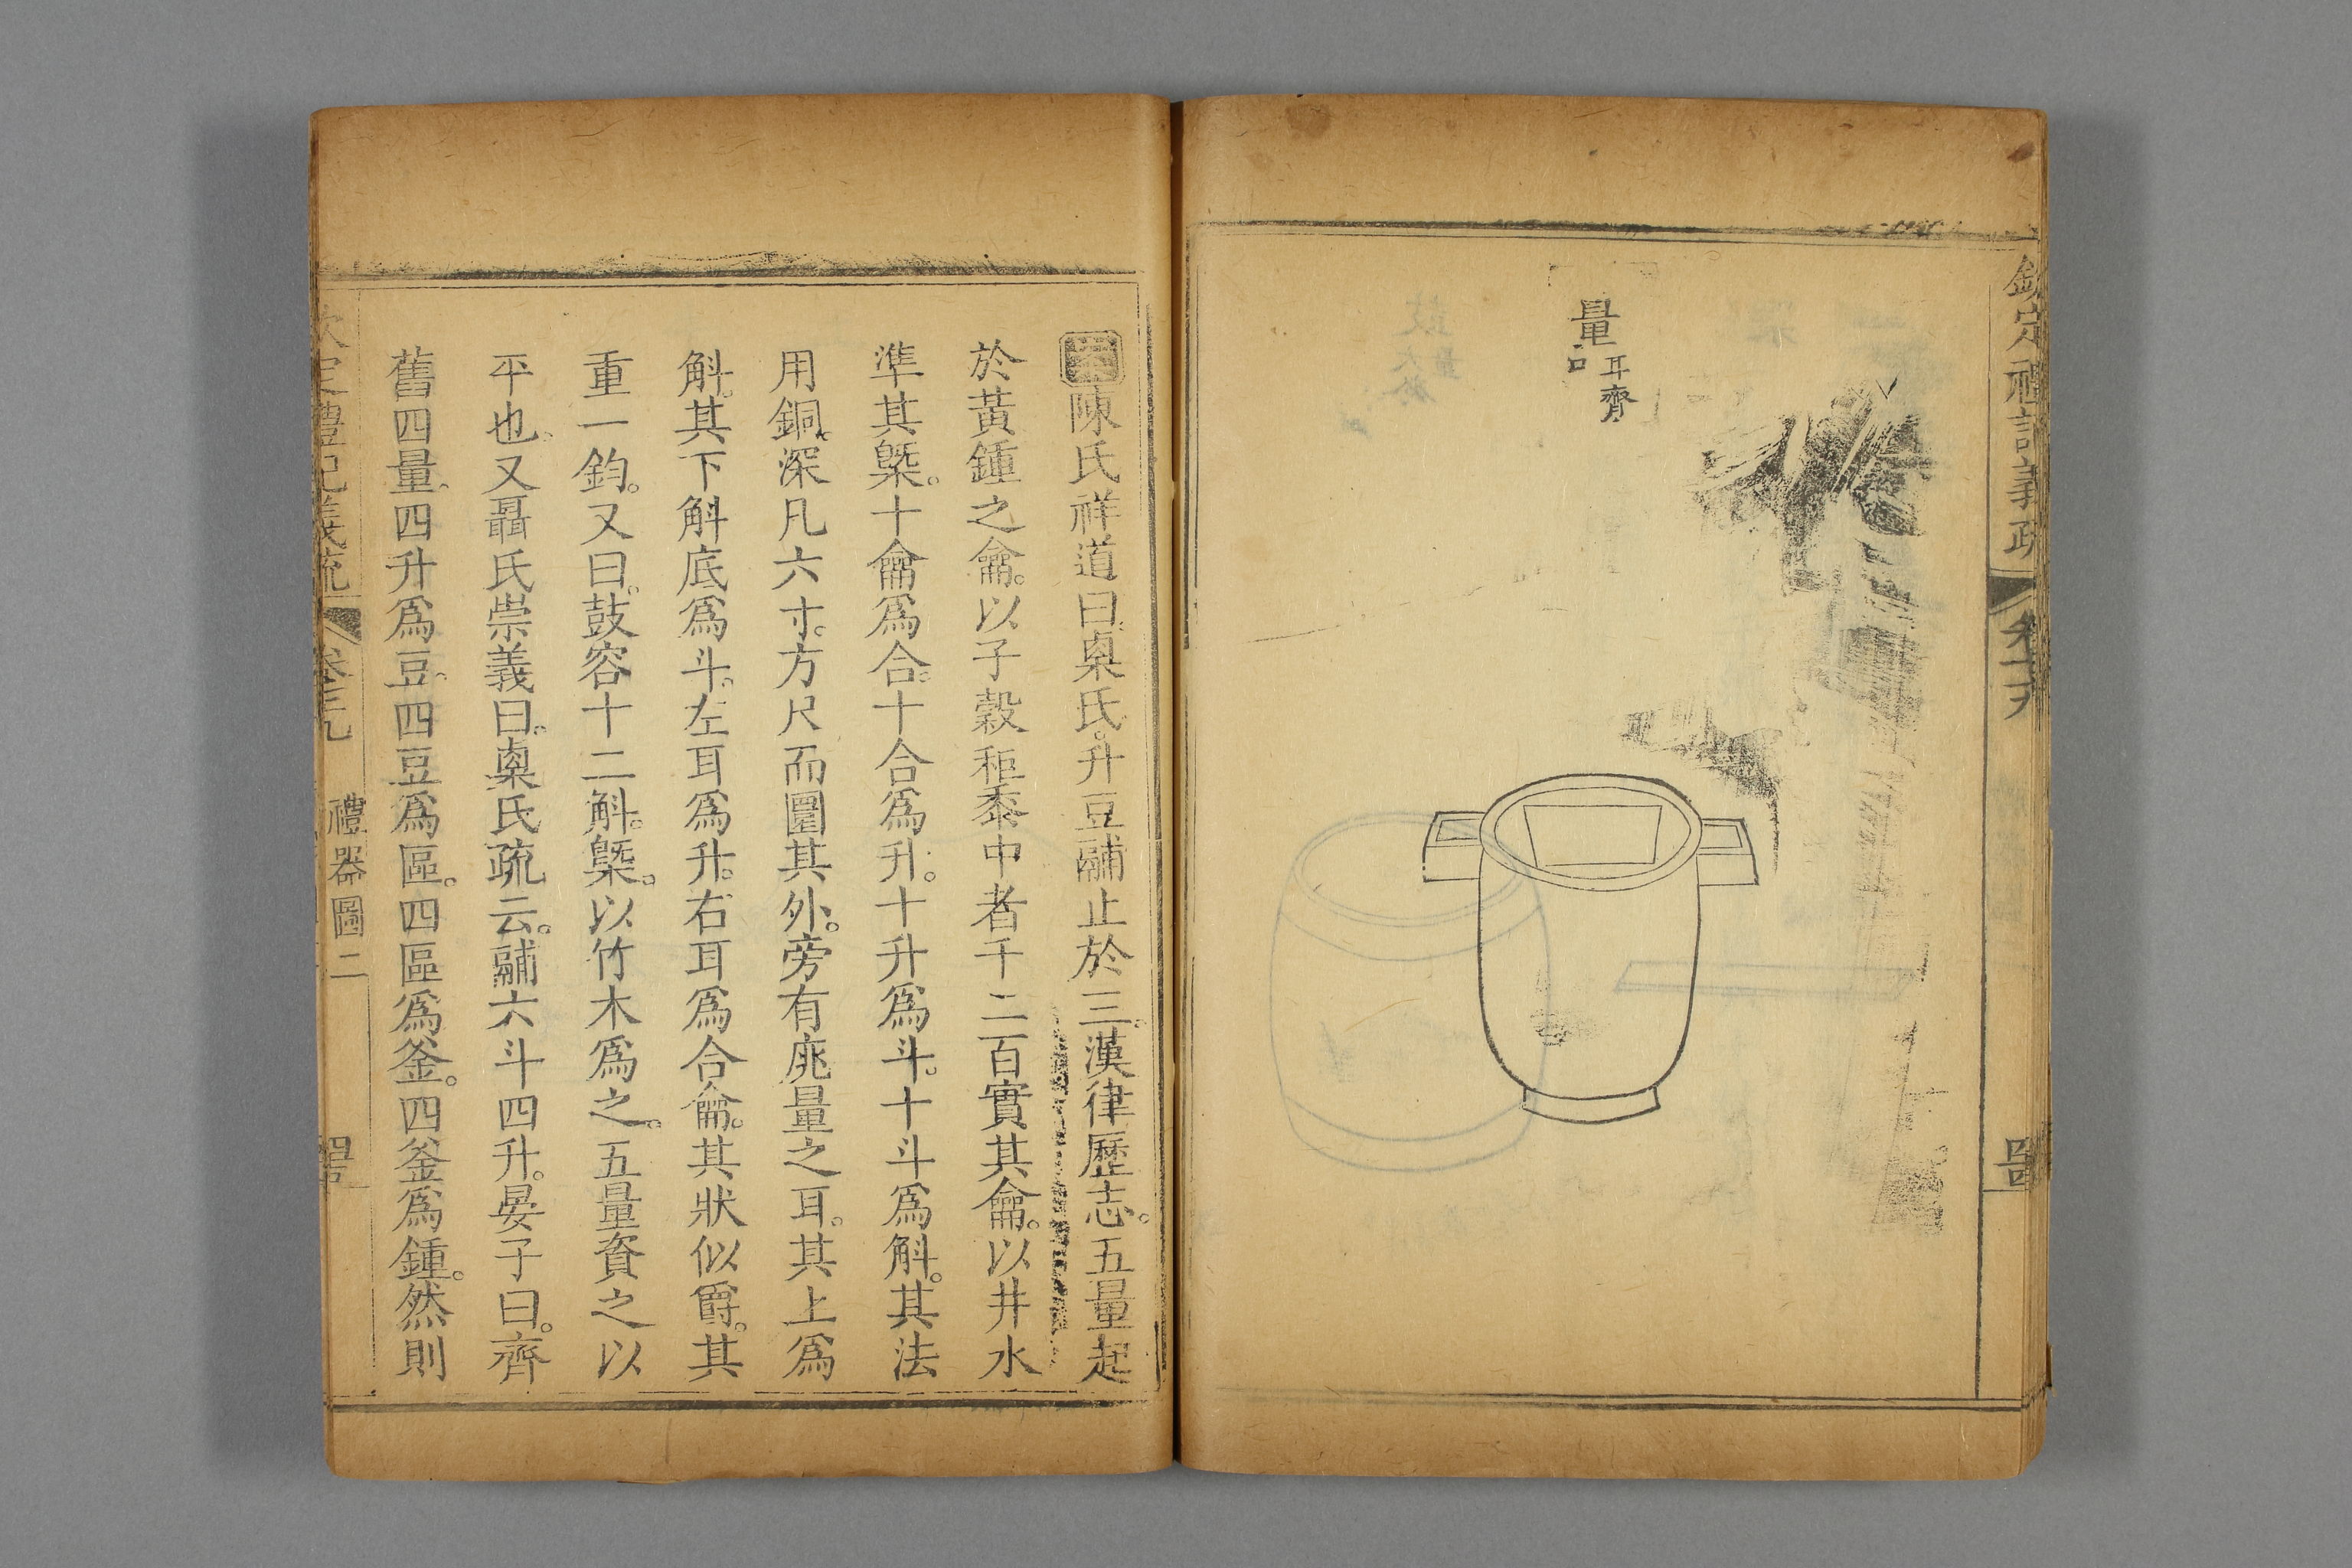 欽定禮記義疏
量
耳齊
口
陳氏祥道曰㮚氏升豆鬴止於三漢律歷志五量起
於黃鍾之龠以子穀秬黍中者千二百實其龠以井水
準其槩十龠爲合十合爲升十升爲斗十斗爲斛其法
用銅深凡六寸方尺而圜其外旁有庣量之耳其上爲
斛其下斛底爲斗左耳爲升右耳爲合龠其狀似爵其
重一鈞又曰鼓容十二斛槩以竹木爲之五量資之以
平也又聶氏崇義曰㮚氏疏云鬴六斗四升晏子曰齊
舊四量四升爲豆四豆爲區四區爲釜四釜爲鍾然則
欽定禮記義疏 禮器圖二